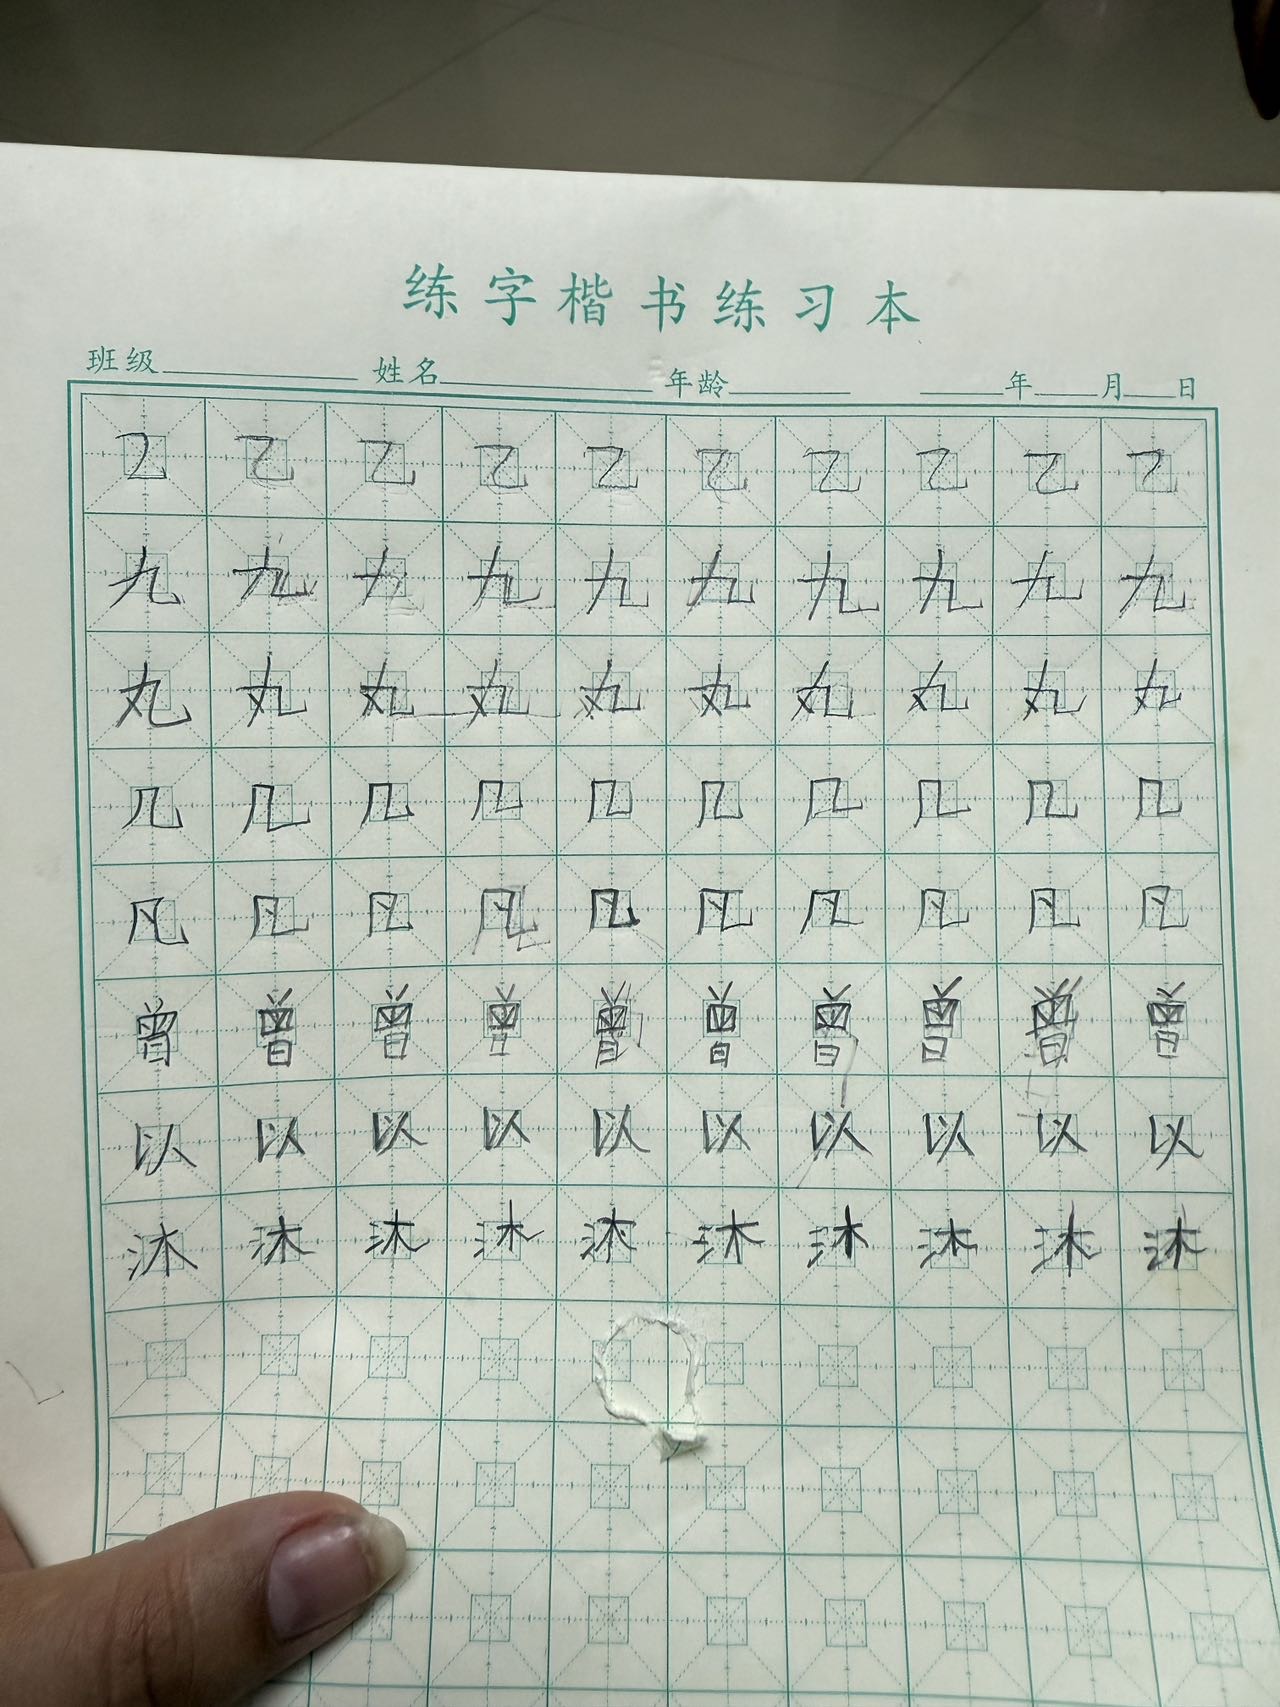 练字楷书练习本
班级 姓名 年龄 年 月 日
乙 乙 乙 乙 乙 乙 乙 乙 乙 乙
九 九 九 九 九 九 九 九 九 九
丸 丸 丸 丸 丸 丸 丸 丸 丸 丸
几 几 几 几 几 几 几 几 几 几
凡 凡 凡 凡 凡 凡 凡 凡 凡 凡
曾 曾 曾 曾 曾 曾 曾 曾 曾 曾
以 以 以 以 以 以 以 以 以 以
沐 沐 沐 沐 沐 沐 沐 沐 沐 沐